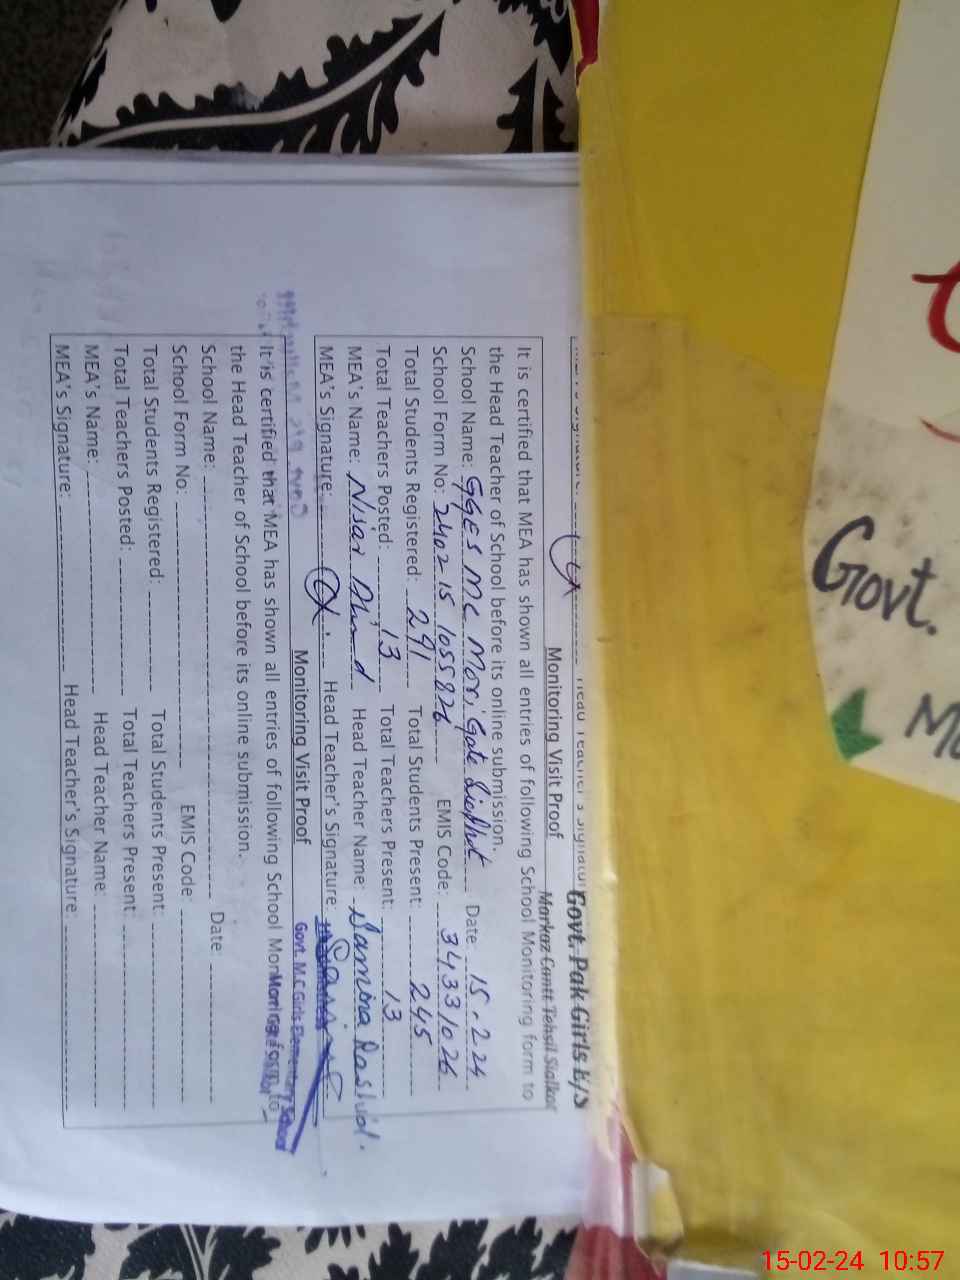 Govt.
Govt. Pak Girls E/S
Markaz Cantt Tehsil Sialkot
Monitoring Visit Proof
It is certified that MEA has shown all entries of following School Monitoring form to
the Head Teacher of School before its online submission.
School Name: GGES MC Mori Gate Sialkot Date 15-2-24
School Form No: 2402 15 1055826 EMIS Code: 34331026
Total Students Registered: 291 Total Students Present: 245
Total Teachers Posted: 13 Total Teachers Present: 13
MEA's Name: Nisar Ahmad Head Teacher Name: Samina Rashid.
MEA's Signature: Head Teacher's Signature:
Monitoring Visit Proof
Govt. M.C Girls Elementary School
It is certified that MEA has shown all entries of following School
the Head Teacher of School before its online submission.
School Name: Date:
School Form No: EMIS Code:
Total Students Registered: Total Students Present:
Total Teachers Posted: Total Teachers Present:
MEA's Name: Head Teacher Name:
MEA's Signature: Head Teacher's Signature:
15-02-24 10:57